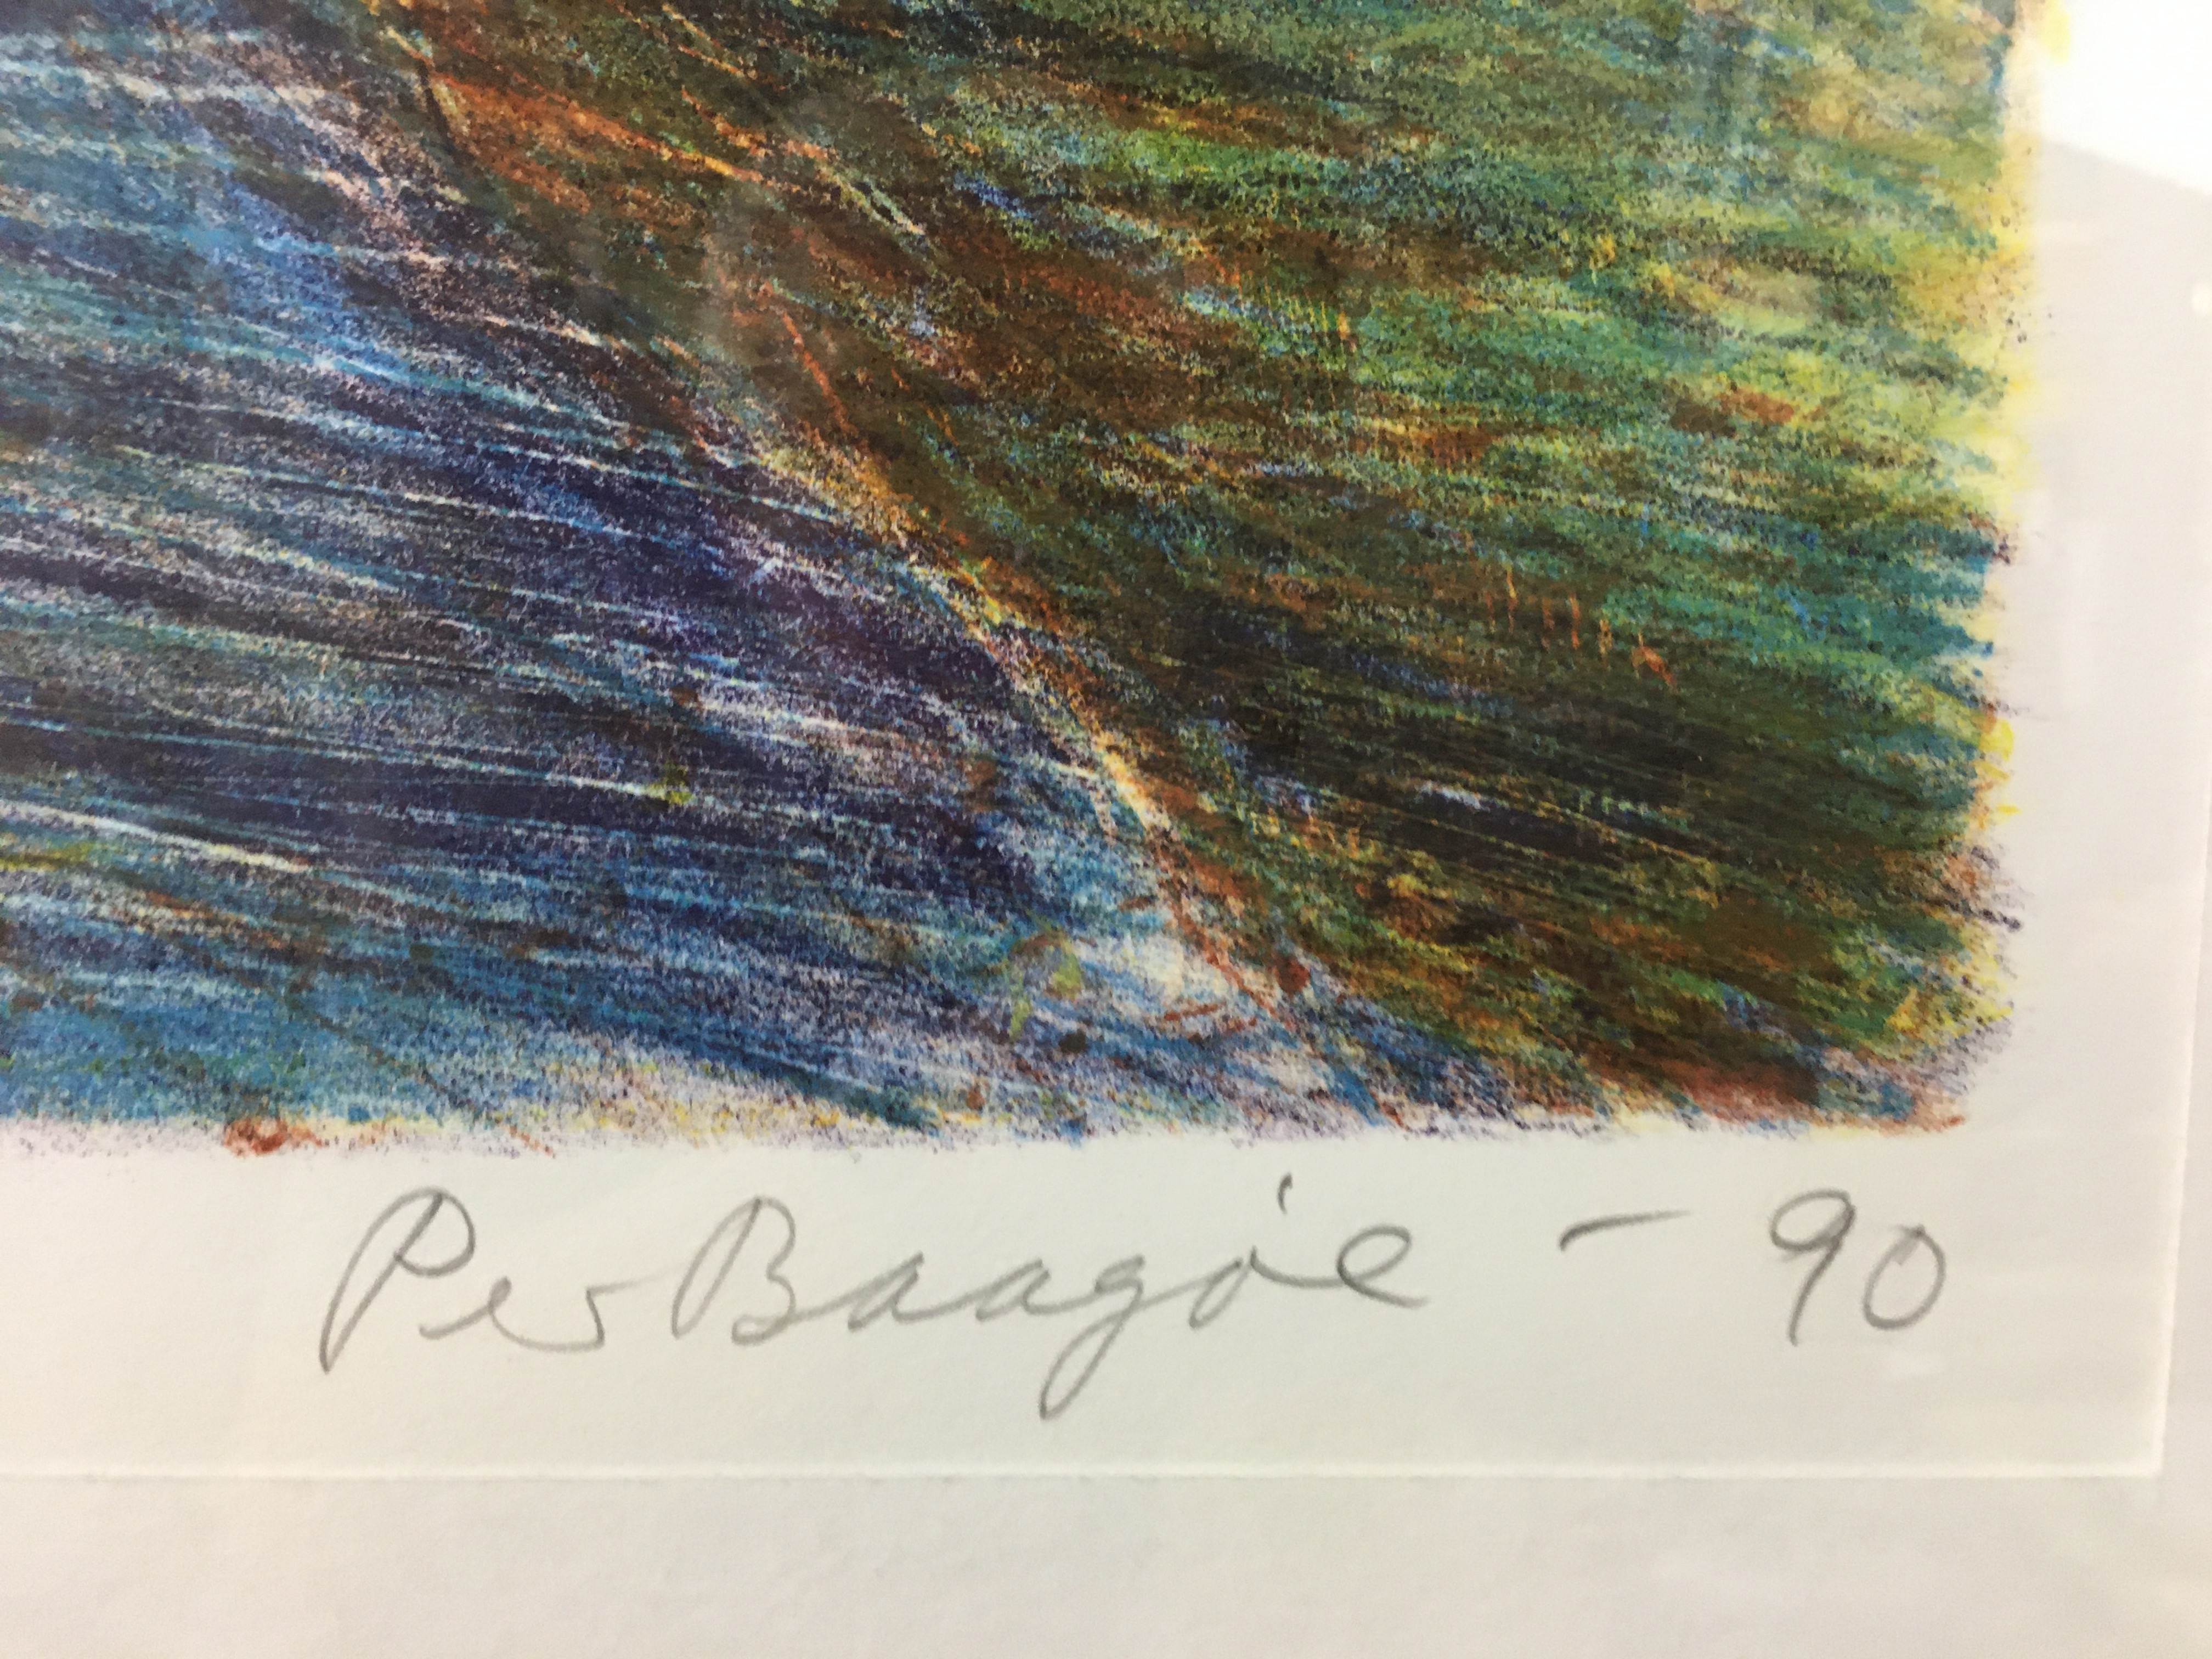 Per Baagøe - 90